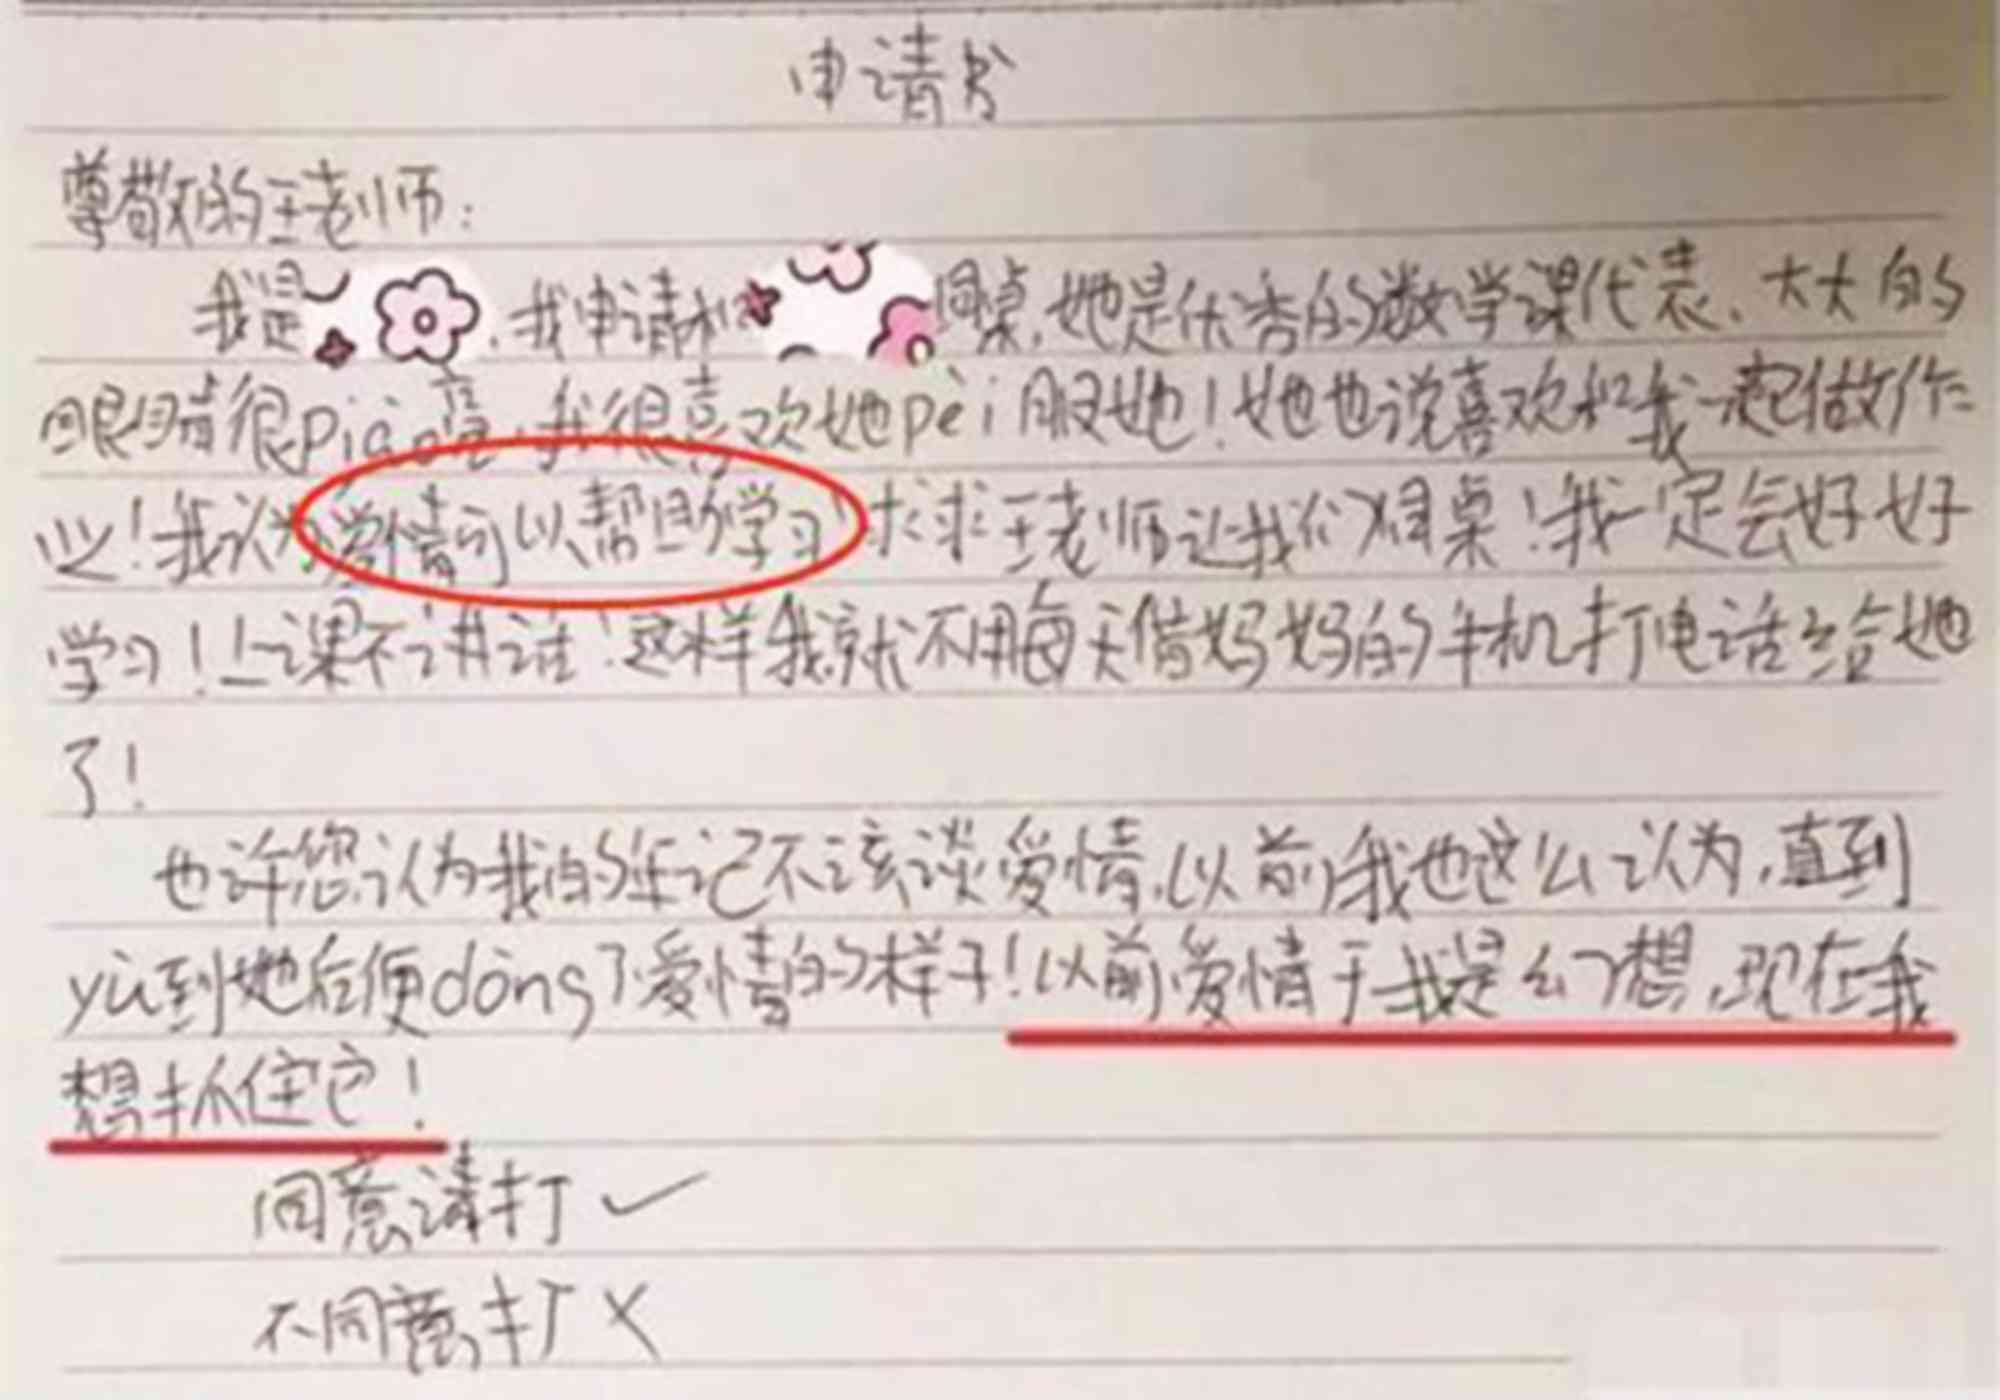 申请书
尊敬的王老师：
我是，我申请和同桌，她是优秀的数学课代表、大大的
眼睛很piào亮，我很喜欢她pèi服她！她也说喜欢和我一起做作
业！我认为爱情可以帮助学习！求求王老师让我们俩桌！我一定会好好
学习！上课不讲话！这样我就不用每天借妈妈的手机打电话给她
了！
也许您认为我的年记不该谈爱情，以前我也这么认为，直到
yù到她后便dǒng了爱情的样子！以前爱情于我是幻想，现在我
想抓住它！
同意请打✓
不同意打×